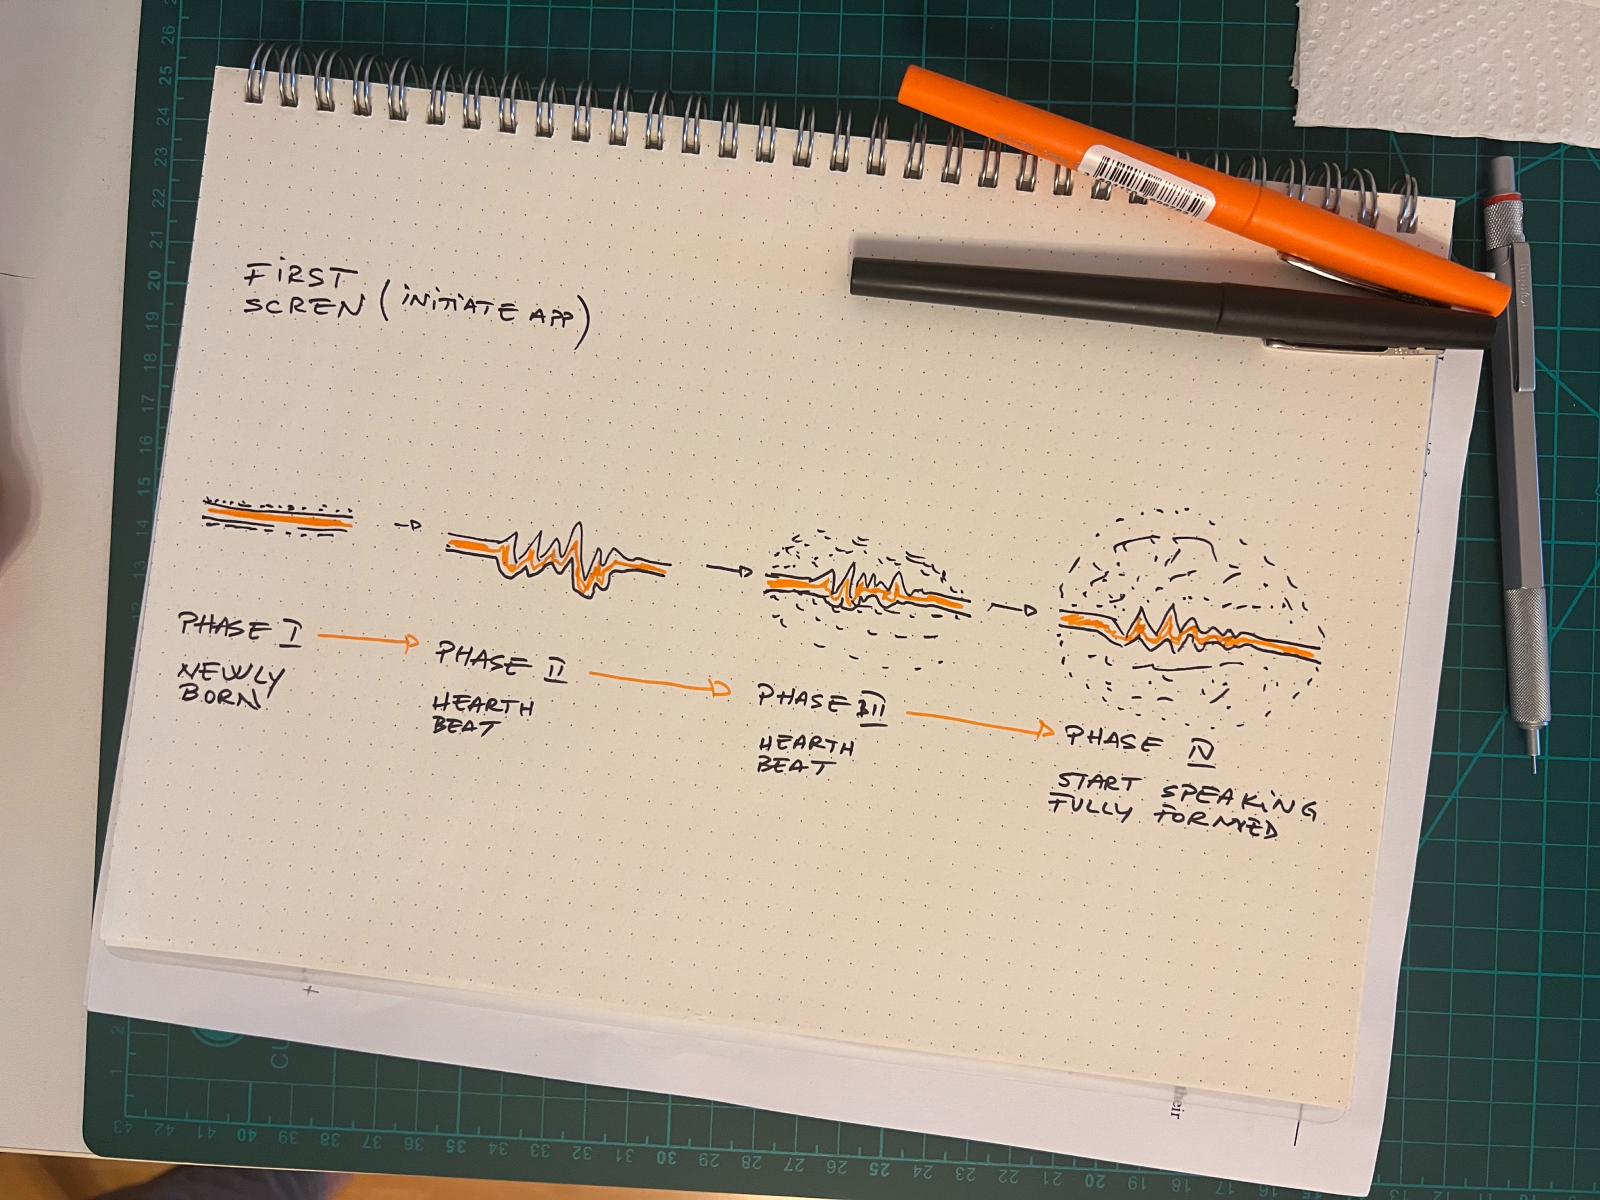 FIRST
SCREN (INITIATE APP)
PHASE I
NEWLY
BORN
PHASE II
HEARTH
BEAT
PHASE III
HEARTH
BEAT
PHASE IV
START SPEAKING
FULLY FORMED
their
26
25
24
23
22
21
20
19
18
17
16
15
14
13
43 42 41 40 39 38 37 36 35 34 33 32 31 30 29 28 27 26 25 24 23 22 21 20 19 18 17 16 15 14 13